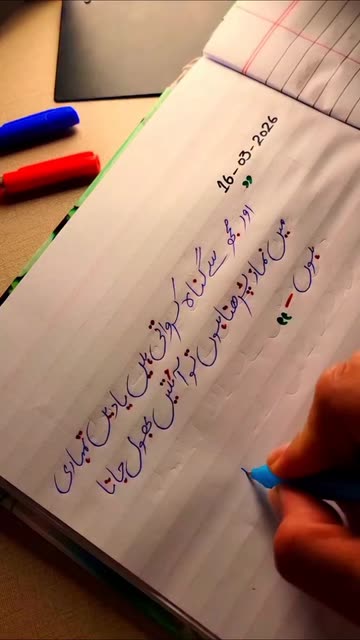 16-03-2026
"
اور مجھ سے گناہ کرواتی ہیں یادیں تمہاری
میں نماز پڑھتا ہوں تو آئتیں بھول جاتا
ہوں ـ "